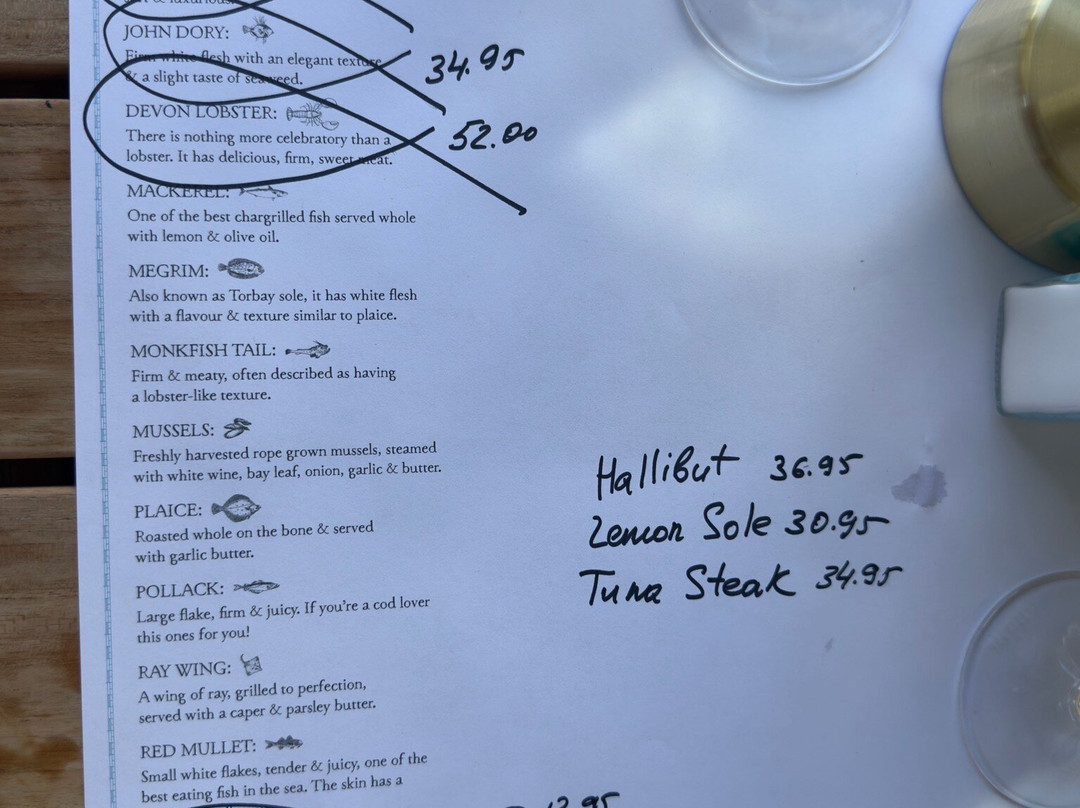 & luxurious.
JOHN DORY:
Firm white flesh with an elegant texture
& a slight taste of seaweed.
34.95
DEVON LOBSTER:
There is nothing more celebratory than a
lobster. It has delicious, firm, sweet meat.
52.00
MACKEREL:
One of the best chargrilled fish served whole
with lemon & olive oil.
MEGRIM:
Also known as Torbay sole, it has white flesh
with a flavour & texture similar to plaice.
MONKFISH TAIL:
Firm & meaty, often described as having
a lobster-like texture.
MUSSELS:
Freshly harvested rope grown mussels, steamed
with white wine, bay leaf, onion, garlic & butter.
PLAICE:
Roasted whole on the bone & served
with garlic butter.
POLLACK:
Large flake, firm & juicy. If you're a cod lover
this ones for you!
RAY WING:
A wing of ray, grilled to perfection,
served with a caper & parsley butter.
RED MULLET:
Small white flakes, tender & juicy, one of the
best eating fish in the sea. The skin has a
Hallibut 36.95
Lemon Sole 30.95
Tuna Steak 34.95